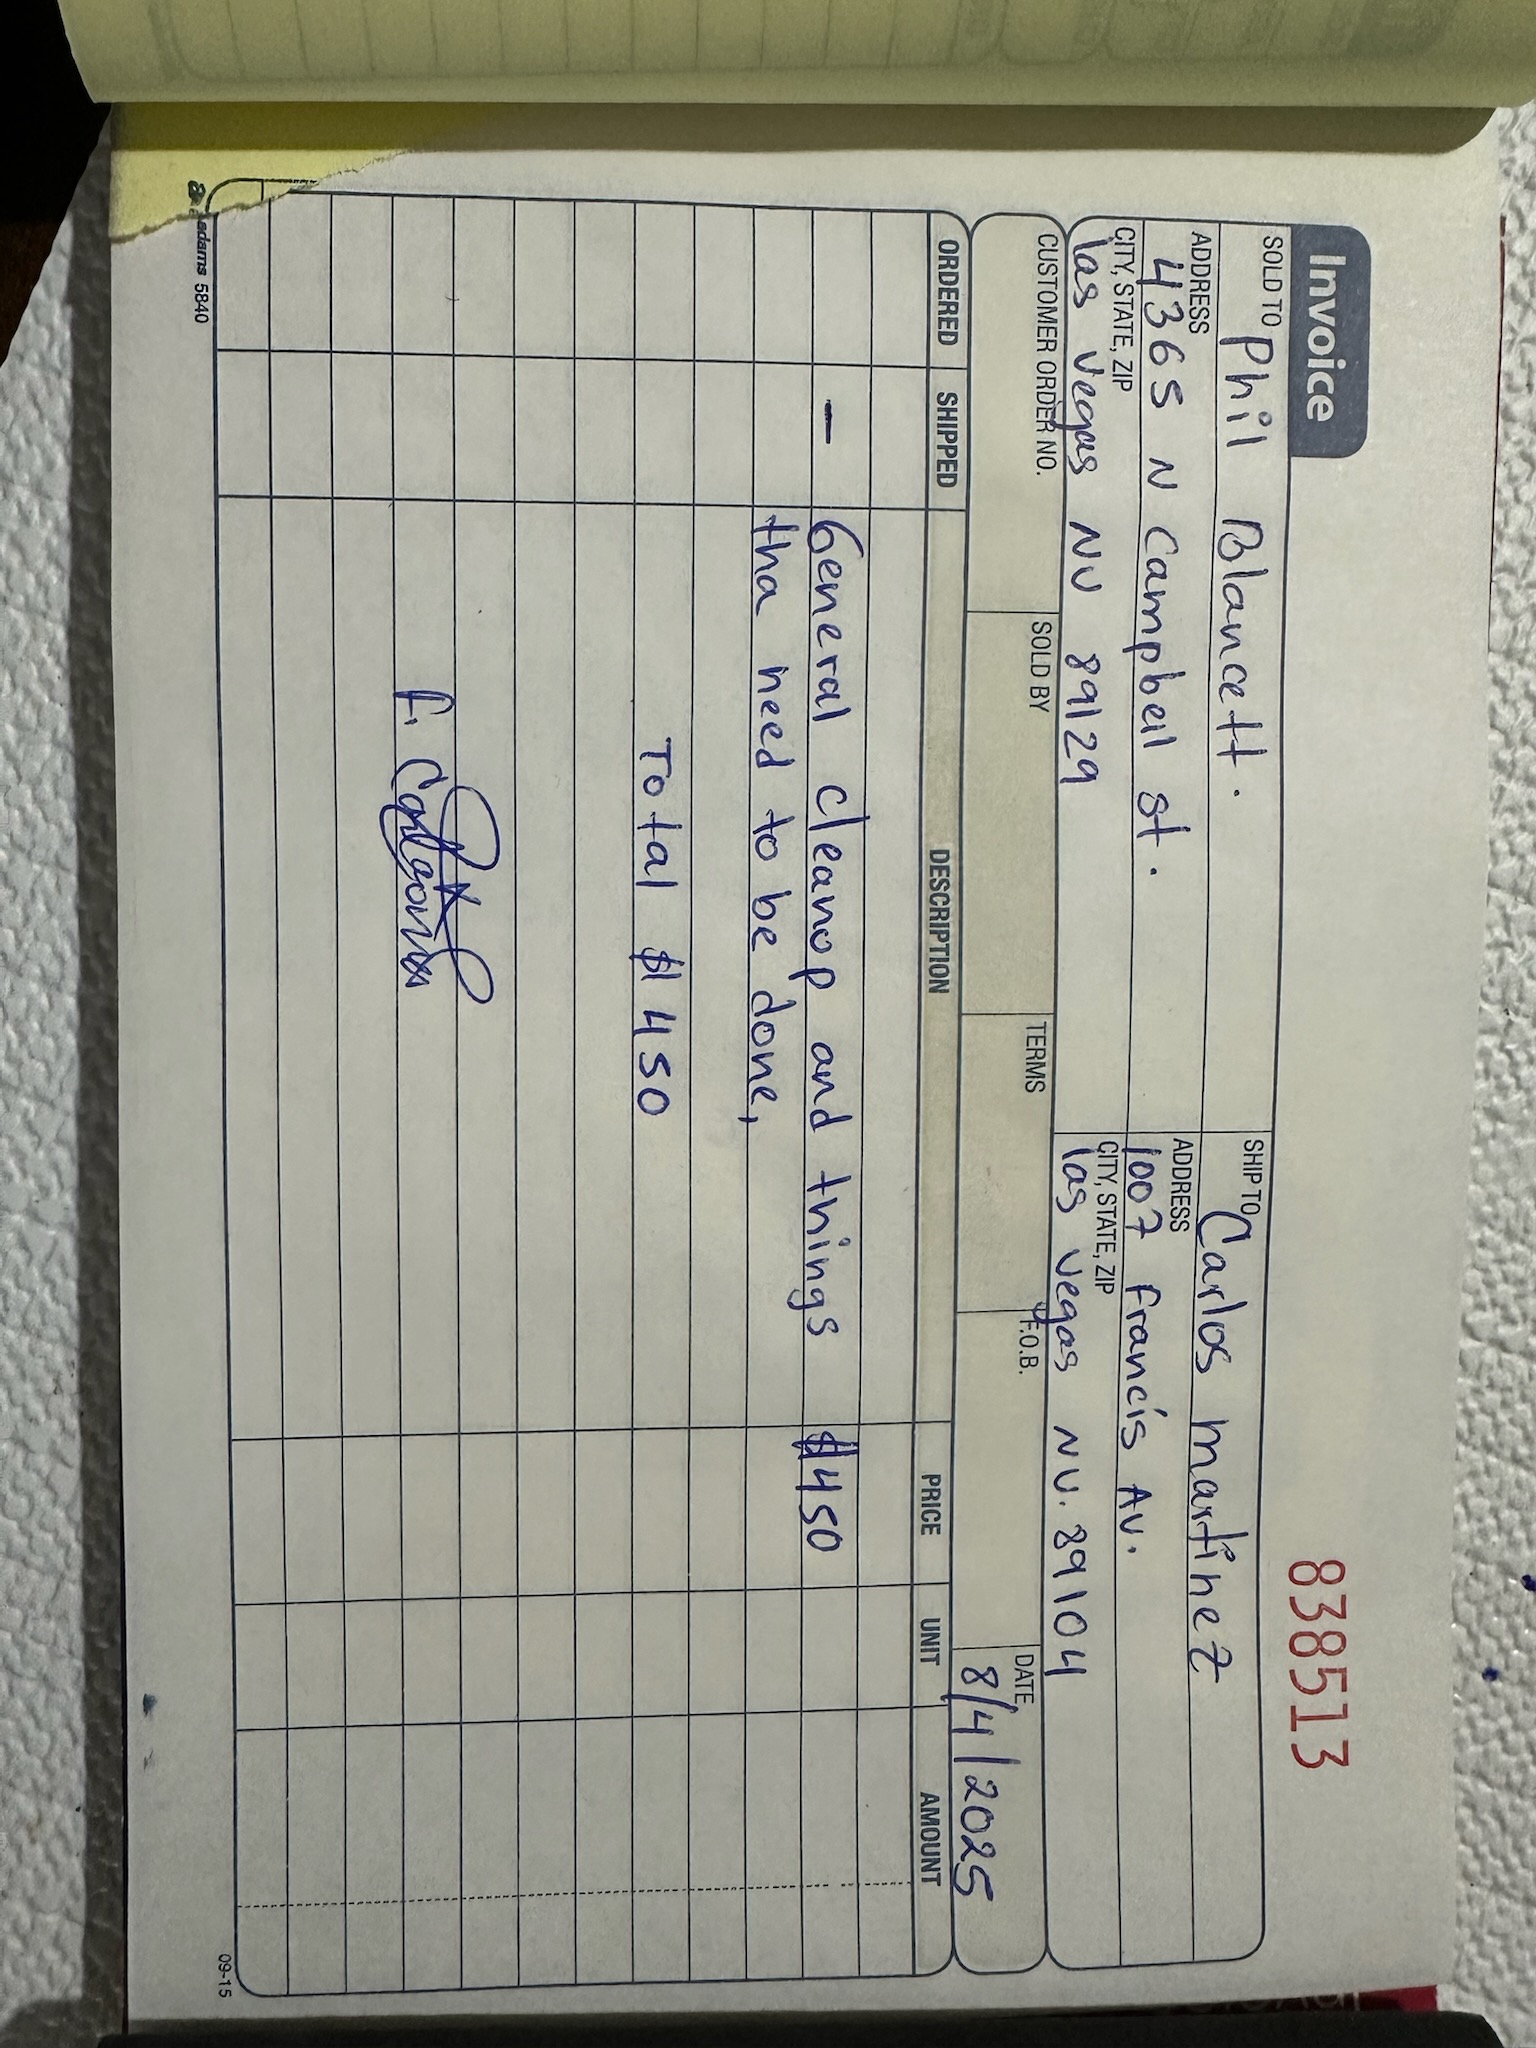 Invoice
838513
SOLD TO Phil Blancett.
SHIP TO Carlos martinez
ADDRESS
4365 N Campbell st.
ADDRESS
1007 francis Av.
CITY, STATE, ZIP
las vegas NV 89129
CITY, STATE, ZIP
las vegas NV. 89104
CUSTOMER ORDER NO. SOLD BY TERMS F.O.B. DATE
8/4/2025
ORDERED SHIPPED DESCRIPTION PRICE UNIT AMOUNT
- General cleanop and things $450
tha need to be done,
Total $450
adams 5840
09-15